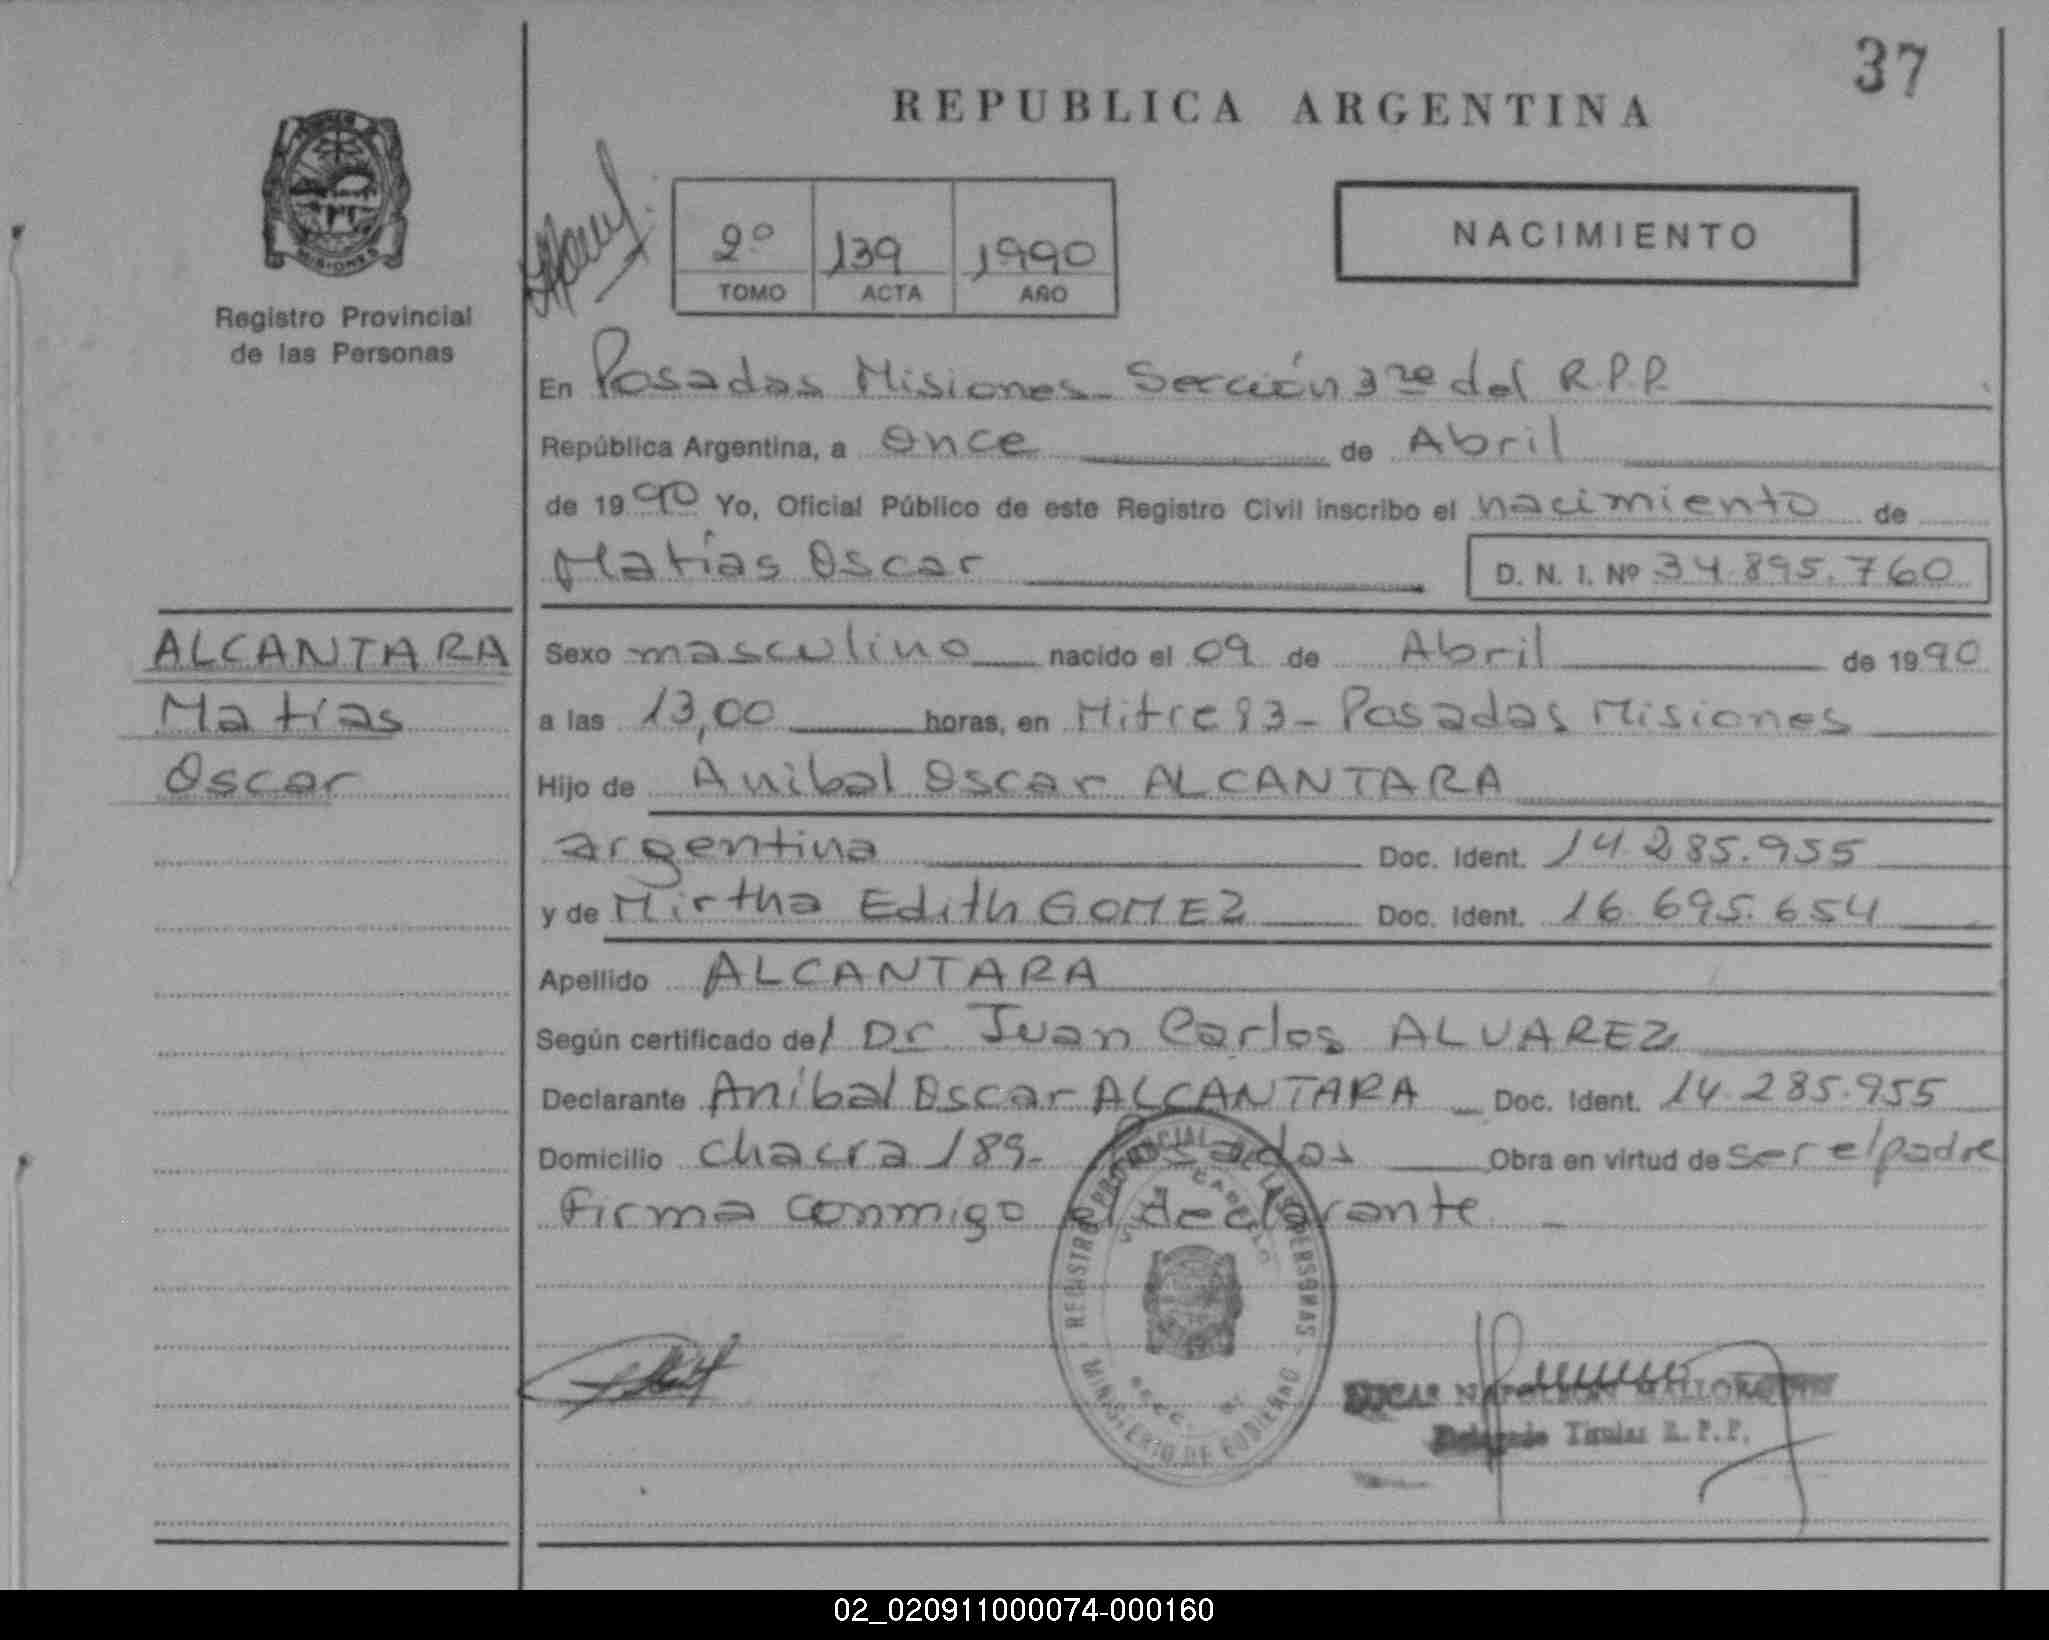 37
REPUBLICA ARGENTINA
MISIONES
Registro Provincial
de las Personas
2º 139 1990
TOMO ACTA AÑO
NACIMIENTO
En Posadas Misiones - Sección 3ra del R.P.P.
República Argentina, a Once de Abril
de 1990 Yo, Oficial Público de este Registro Civil inscribo el nacimiento de
Matías Oscar D. N. I. Nº 34.895.760
ALCANTARA
Matías
Oscar
Sexo masculino nacido el 09 de Abril de 1990
a las 13,00 horas, en Mitre 93 - Posadas Misiones
Hijo de Anibal Oscar ALCANTARA
argentina Doc. Ident. 14.285.955
y de Mirtha Edith GOMEZ Doc. Ident. 16.695.654
Apellido ALCANTARA
Según certificado del Dr. Juan Carlos ALVAREZ
Declarante Aníbal Oscar ALCANTARA Doc. Ident. 14.285.955
Domicilio chacra 189 - Posadas Obra en virtud de ser el padre
firma conmigo el declarante
REGISTRO PROVINCIAL DE LAS PERSONAS
MINISTERIO DE GOBIERNO
NAPOLEON
Titular R.P.P.
02_020911000074-000160